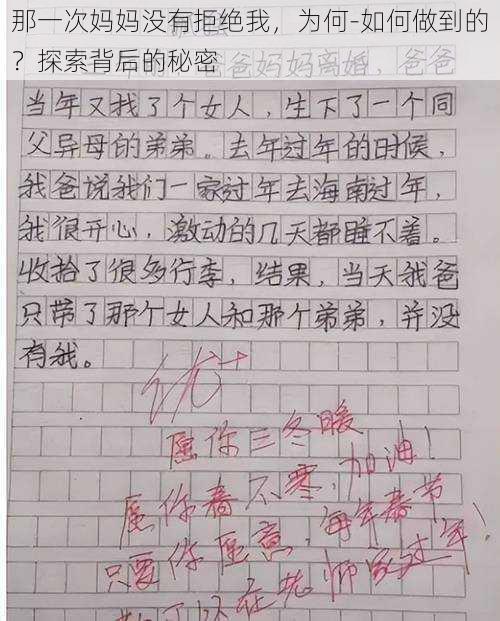 那一次妈妈没有拒绝我，为何-如何做到的
？探索背后的秘密
爸妈妈离婚，爸爸
当年又找了个女人，生下了一个同
父异母的弟弟。去年过年的时候，
我爸说我们一家过年去海南过年，
我很开心，激动的几天都睡不着。
收拾了很多行李，结果，当天我爸
只带了那个女人和那个弟弟，并没
有我。
优+
愿你三冬暖
愿你春不寒，加油！
只要你愿意，每年春节
都可以在老师家过年！